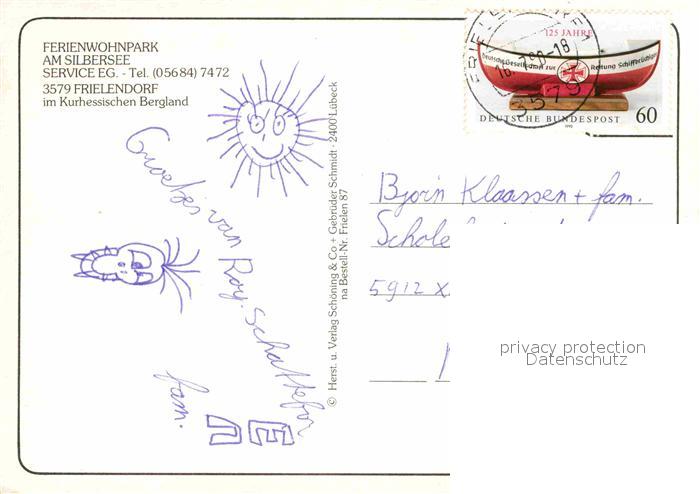 FERIENWOHNPARK
AM SILBERSEE
SERVICE EG. - Tel. (05684) 7472
3579 FRIELENDORF
im Kurhessischen Bergland
Groetjes van Roy.
fam.
EN
© Herst. u. Verlag Schöning & Co + Gebrüder Schmidt · 2400 Lübeck
na Bestell-Nr. Frielen 87
125 JAHRE
Deutsche Gesellschaft zur Rettung Schiffbrüchiger
DEUTSCHE BUNDESPOST 60
1990
3579
Bjorn Klaassen + fam.
Schole
5912 X
privacy protection
Datenschutz